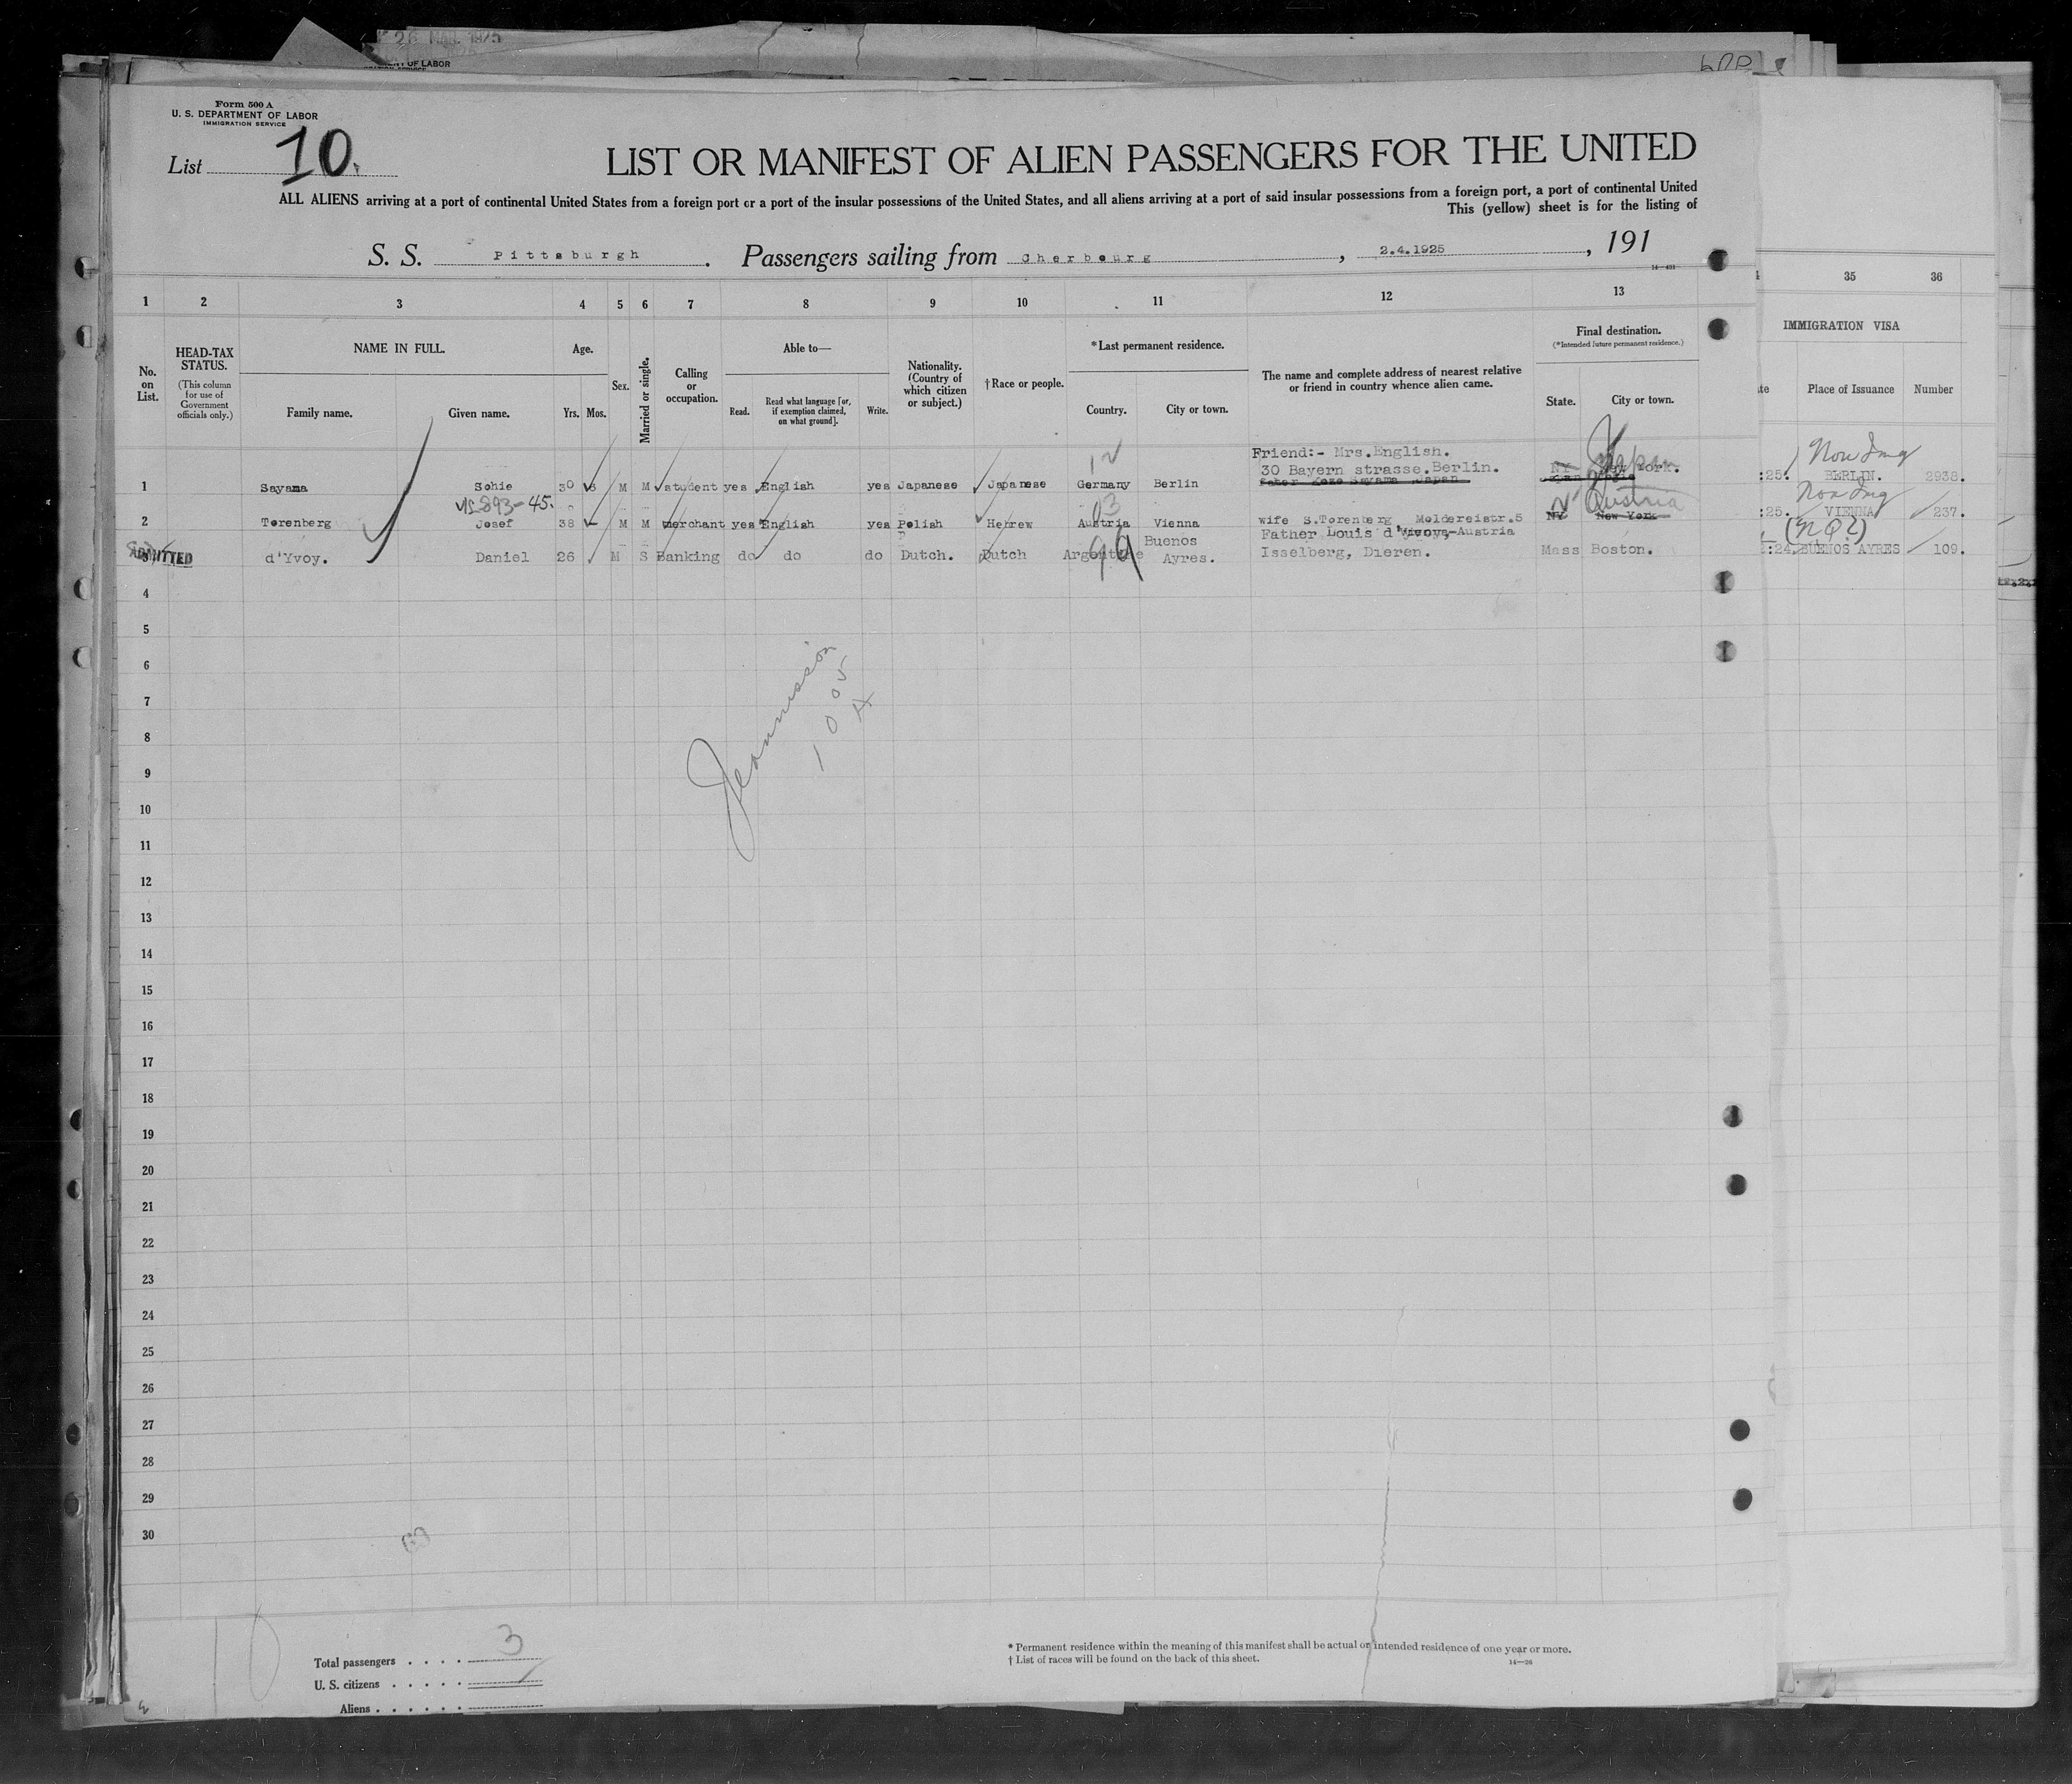 26 MAR 1925
OF LABOR
Form 500 A
U. S. DEPARTMENT OF LABOR
IMMIGRATION SERVICE
List 10.
LIST OR MANIFEST OF ALIEN PASSENGERS FOR THE UNITED
ALL ALIENS arriving at a port of continental United States from a foreign port or a port of the insular possessions of the United States, and all aliens arriving at a port of said insular possessions from a foreign port, a port of continental United
This (yellow) sheet is for the listing of
S. S. Pittsburgh. Passengers sailing from Cherbourg, 2.4.1925, 191
1 2 3 4 5 6 7 8 9 10 11 12 13 35 36
No. on List.
HEAD-TAX STATUS.
(This column for use of Government officials only.)
NAME IN FULL.
Family name. Given name.
Age.
Yrs. Mos.
Sex.
Married or single.
Calling or occupation.
Able to—
Read. Read what language [or, if exemption claimed, on what ground]. Write.
Nationality. (Country of which citizen or subject.)
†Race or people.
*Last permanent residence.
Country. City or town.
The name and complete address of nearest relative or friend in country whence alien came.
Final destination.
(*Intended future permanent residence.)
State. City or town.
IMMIGRATION VISA
te Place of Issuance Number
Friend:- Mrs.English.
30 Bayern strasse.Berlin.
1 Sayama Sohie 30 M M student yes English yes Japanese Japanese Germany Berlin NY New York. Japan :25. Non Img BERLIN. 2938.
893-45.
2 Torenberg Josef 38 M M merchant yes English yes Polish Hebrew Austria Vienna wife S.Torenberg Moldereistr.5 NY New York Austria :25. Non Img VIENNA 237.
03
Father Louis d'Yvoy,
-Austria
ADMITTED 3 d'Yvoy. Daniel 26 M S Banking do do do Dutch. Dutch Argentine Buenos Ayres. Isselberg, Dieren. Mass Boston. :24. BUENOS AYRES 109.
99
4
5
6
7
8
9
10
11
12
13
14
15
16
17
18
19
20
21
22
23
24
25
26
27
28
29
30
10
Total passengers . . . . 3
U. S. citizens . . . . .
Aliens . . . . . .
* Permanent residence within the meaning of this manifest shall be actual or intended residence of one year or more.
† List of races will be found on the back of this sheet.